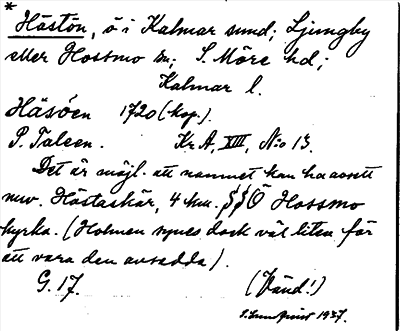 * Hästön, ö i Kalmar sund; Ljungby
eller Hossmo sn; S. Möre hd;
Kalmar l.
Häsöen 1720 (kop).
P. Taleen. Kr A, XIII, N:o 13.
Det är möjl. att namnet kan ha avsett
nuv. Hästaskär, 4 km. SSÖ Hossmo
kyrka. (Holmen synes dock väl liten för
att vara den avsedda).
G. 17. (Vänd!)
1937.